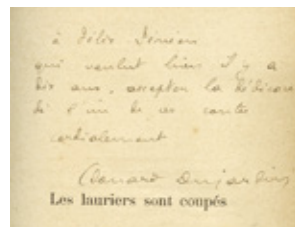 à Félix Fénéon
qui voulut bien il y a
dix ans, accepter la dédicace
de l'un de ces contes
cordialement
Edouard Dujardin
Les lauriers sont coupés